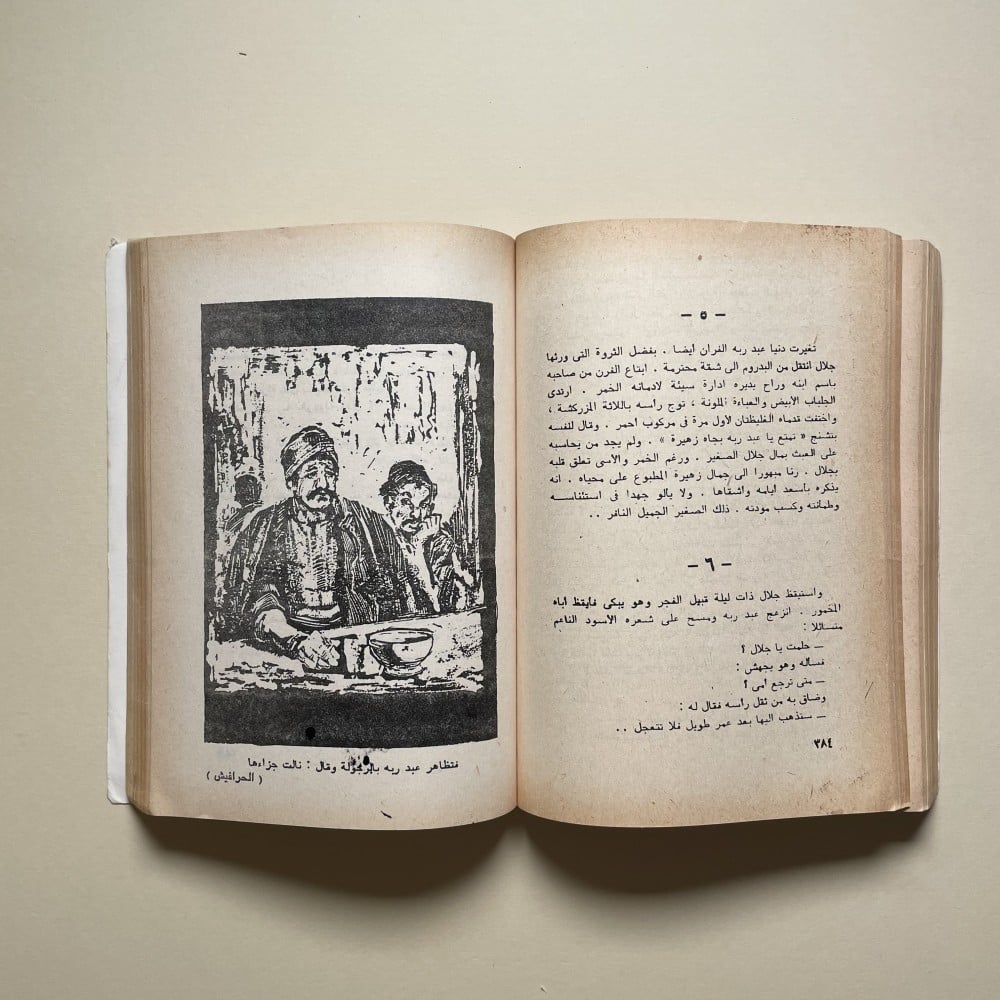 — ٥ —
تغيرت دنيا عبد ربه الفران أيضا . بفضل الثروة التى ورثها
جلال انتقل من البدروم الى شقة محترمة . ابتاع الفرن من صاحبه
باسم ابنه وراح يديره ادارة سيئة لادمانه الخمر . ارتدى
الجلباب الأبيض والعباءة الملونة ، توج رأسه باللاثة المزركشة ،
واختفت قدماه الغليظتان لأول مرة فى مركوب احمر . وقال لنفسه
بتشنج « تمتع يا عبد ربه بجاه زهيرة » . ولم يجد من يحاسبه
على العبث بمال جلال الصغير . ورغم الخمر والأسى تعلق قلبه
بجلال . رنا مبهورا الى جمال زهيرة المطبوع على محياه . انه
يذكره بأسعد ايامه واشقاها . ولا يالو جهدا فى استئناسه
وطمأنته وكسب مودته . ذلك الصغير الجميل النافر ..
— ٦ —
واستيقظ جلال ذات ليلة قبيل الفجر وهو يبكى فايقظ اباه
المخمور . انزعج عبد ربه ومسح على شعره الأسود الناعم
متسائلا :
— حلمت يا جلال ؟
فساله وهو يجهش :
— متى ترجع أمى ؟
وضاق به من ثقل رأسه فقال له :
— ستذهب اليها بعد عمر طويل فلا تتعجل ..
٣٨٤
فتظاهر عبد ربه بالرجولة وقال : نالت جزاءها
( الحرافيش )